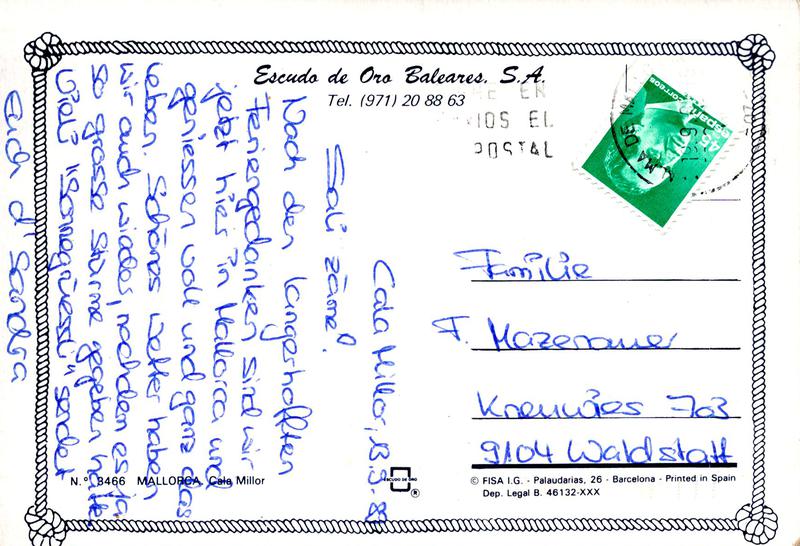 Escudo de Oro Baleares. S.A.
Tel. (971) 20 88 63
Cala Millor, 13.9.89
Sali zäme!
Nach den langerhofften
Feriengedanken sind wir
jetzt hier in Mallorca und
geniessen voll und ganz das
Leben. Schönes Wetter haben
wir auch wieder, nachdem es ja
so grosse Stürme gegeben hatte.
Vieli "Sonnegrüessli" sendet
euch d'Sandra
ER
IOS EL
POSTAL
España
correos
Familie
F. Mazenauer
9104 Waldstatt
N.º 3466 MALLORCA. Cala Millor
ESCUDO DE ORO
®
© FISA I.G. - Palaudarias, 26 - Barcelona - Printed in Spain
Dep. Legal B. 46132-XXX